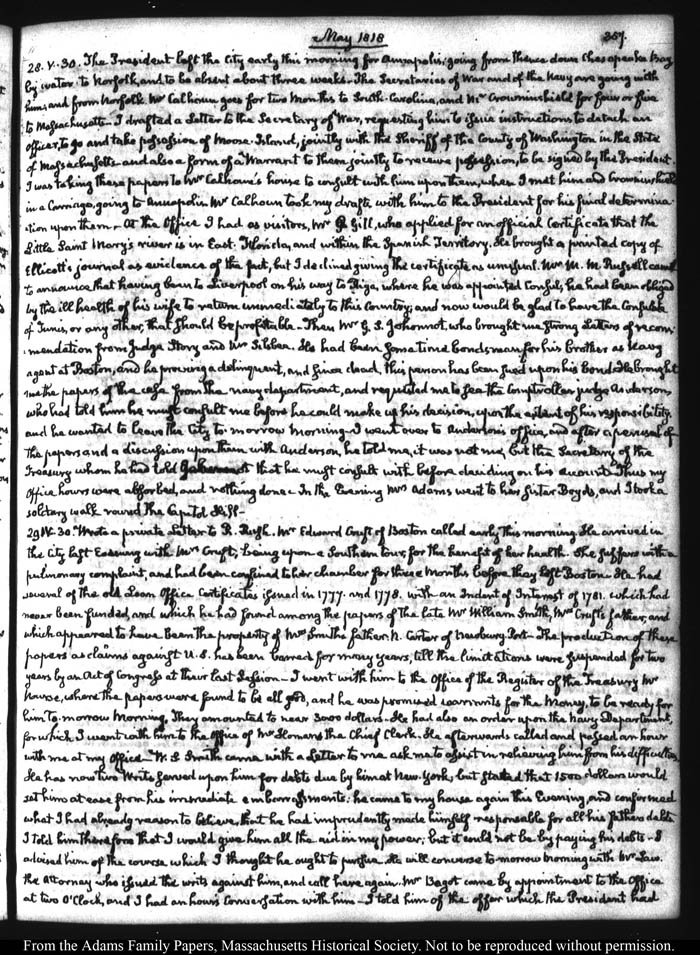 May 1818
357.
28. V:30. The President left the City early this morning for Annapolis; going from thence down Chesapeake Bay
by water to Norfolk, and to be absent about three weeks. The Secretaries of War and of the Navy are going with
him; and from Norfolk Mr Calhoun goes for two Months to South-Carolina, and Mr Crowninshield for four or five
to Massachusetts. I drafted a Letter to the Secretary of War, requesting him to issue instructions to detach an
officer, to go and take possession of Moose-Island, jointly with the Sheriff of the County of Washington in the State
of Massachusetts and also a form of a Warrant to them jointly to receive possession, to be signed by the President.
I was taking these papers to Mr Calhoun's house to consult with him upon them, when I met him and Crowninshield
in a Carriage, going to Annapolis. Mr Calhoun took my drafts with him to the President for his final determina-
-tion upon them. At the Office I had as visitors, Mr Gill, who applied for an official Certificate that the
Little Saint Mary's river is in East-Florida, and within the Spanish Territory. He brought a printed copy of
Ellicott's journal as evidence of the fact, but I declined giving the certificate as unusual. Mr M. M. Russell came
to announce that having been to Liverpool on his way to Riga, where he was appointed Consul, he had been obliged
by the ill health of his wife to return immediately to this Country; and now would be glad to have the Consulate
of Tunis, or any other, that should be profitable. Then Mr G. S. Johonnot, who brought me strong Letters of recom-
-mendation from Judge Story and Mr Silsbee. He had been sometime bondsman for his brother as Navy
agent at Boston, and he proving a delinquent, and since dead, this person has been sued upon his bond. He brought
me the papers of the case from the navy department, and requested me to see the Comptroller judge Anderson
who had told him he must consult me before he could make up his decision, upon the extent of his responsibility.
and he wanted to leave the City to morrow morning. I went over to Anderson's office, and after a perusal of
the papers and a discussion upon them with Anderson, he told me, it was not me, but the Secretary of the
Treasury whom he had told Johonnot that he must consult with before deciding on his account. Thus my
Office hours were absorbed, and nothing done. In the Evening Mrs Adams went to her Sister Boyd's, and I took a
solitary walk round the Capitol Hill.
29. IV:30. Wrote a private Letter to R. Rush. Mr Edward Cruft of Boston called early this morning. He arrived in
the City last Evening with Mrs Cruft; being upon a Southern tour, for the benefit of her health. She suffers with a
pulmonary complaint, and had been confined to her chamber for three Months before they left Boston. He had
several of the old Loan Office Certificates issued in 1777. and 1778. with an Indent of Interest of 1781. which had
never been funded, and which he had found among the papers of the late Mr William Smith, Mrs Cruft's father, and
which appeared to have been the property of Mrs Smith's father N. Carter of Newbury Port. The production of these
papers as claims against U.S. has been barred for many years, till the limitations were suspended for two
years by an Act of Congress at their last Session. I went with him to the Office of the Register of the Treasury Mr
Nourse, where the papers were found to be all good, and he was promised warrants for the Money, to be ready for
him to-morrow Morning. They amounted to near 3000 dollars. He had also an order upon the Navy Department,
for which I went with him to the office of Mr Homans the Chief Clerk. He afterwards called and passed an hour
with me at my Office. W. S. Smith came with a Letter to me ask me to assist in relieving him from his difficulties.
He has now two Writs served upon him for debts due by him at New York, but stated that 1500 dollars would
set him at ease from his immediate embarrassments: he came to my house again this Evening, and confirmed
what I had already reason to believe, that he had imprudently made himself responsible for all his fathers debts
I told him therefore that I would give him all the aid in my power; but it could not be by paying his debts. I
advised him of the course which I thought he ought to pursue. He will converse to-morrow morning with Mr Law.
the Attorney who issued the writs against him, and call here again. Mr Bagot came by appointment to the Office
at two O'Clock, and I had an hour's Conversation with him. I told him of the offer which the President had
From the Adams Family Papers, Massachusetts Historical Society. Not to be reproduced without permission.